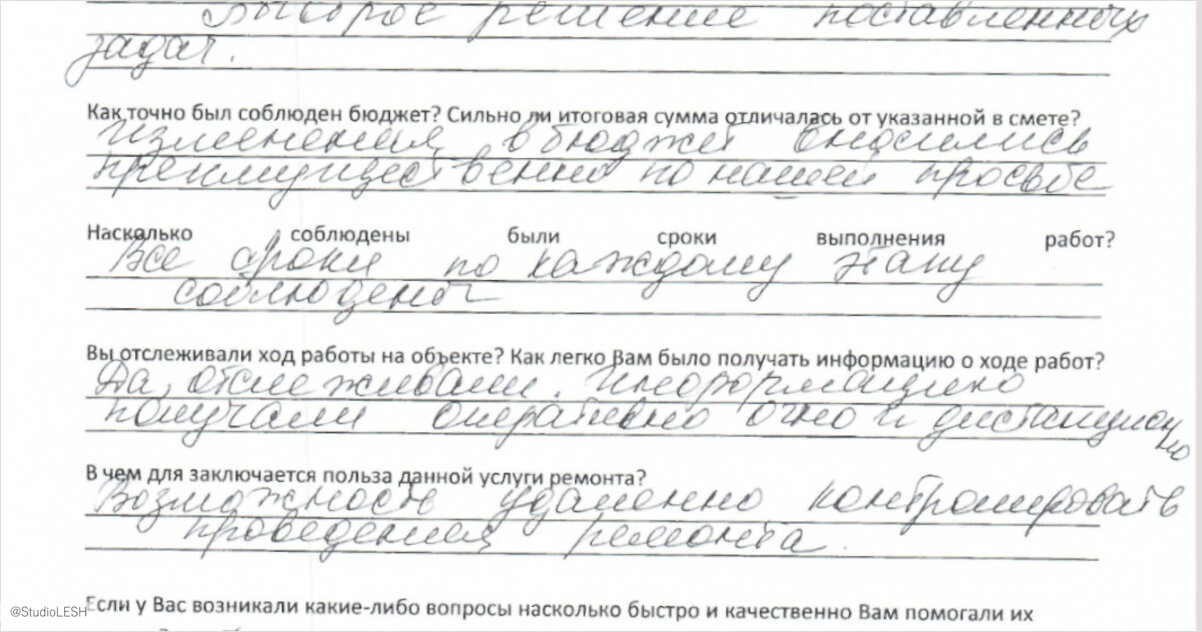 Быстрое решение поставленных
задач.
Как точно был соблюден бюджет? Сильно ли итоговая сумма отличалась от указанной в смете?
Изменения в бюджет вносились
преимущественно по нашей просьбе
Насколько соблюдены были сроки выполнения работ?
Все сроки по каждому этапу
соблюдены
Вы отслеживали ход работы на объекте? Как легко Вам было получать информацию о ходе работ?
Да, отслеживали. Информацию
получали оперативно очно и дистанционно
В чем для заключается польза данной услуги ремонта?
Возможность удаленно контролировать
проведения ремонта.
Если у Вас возникали какие-либо вопросы насколько быстро и качественно Вам помогали их
@StudioLESH